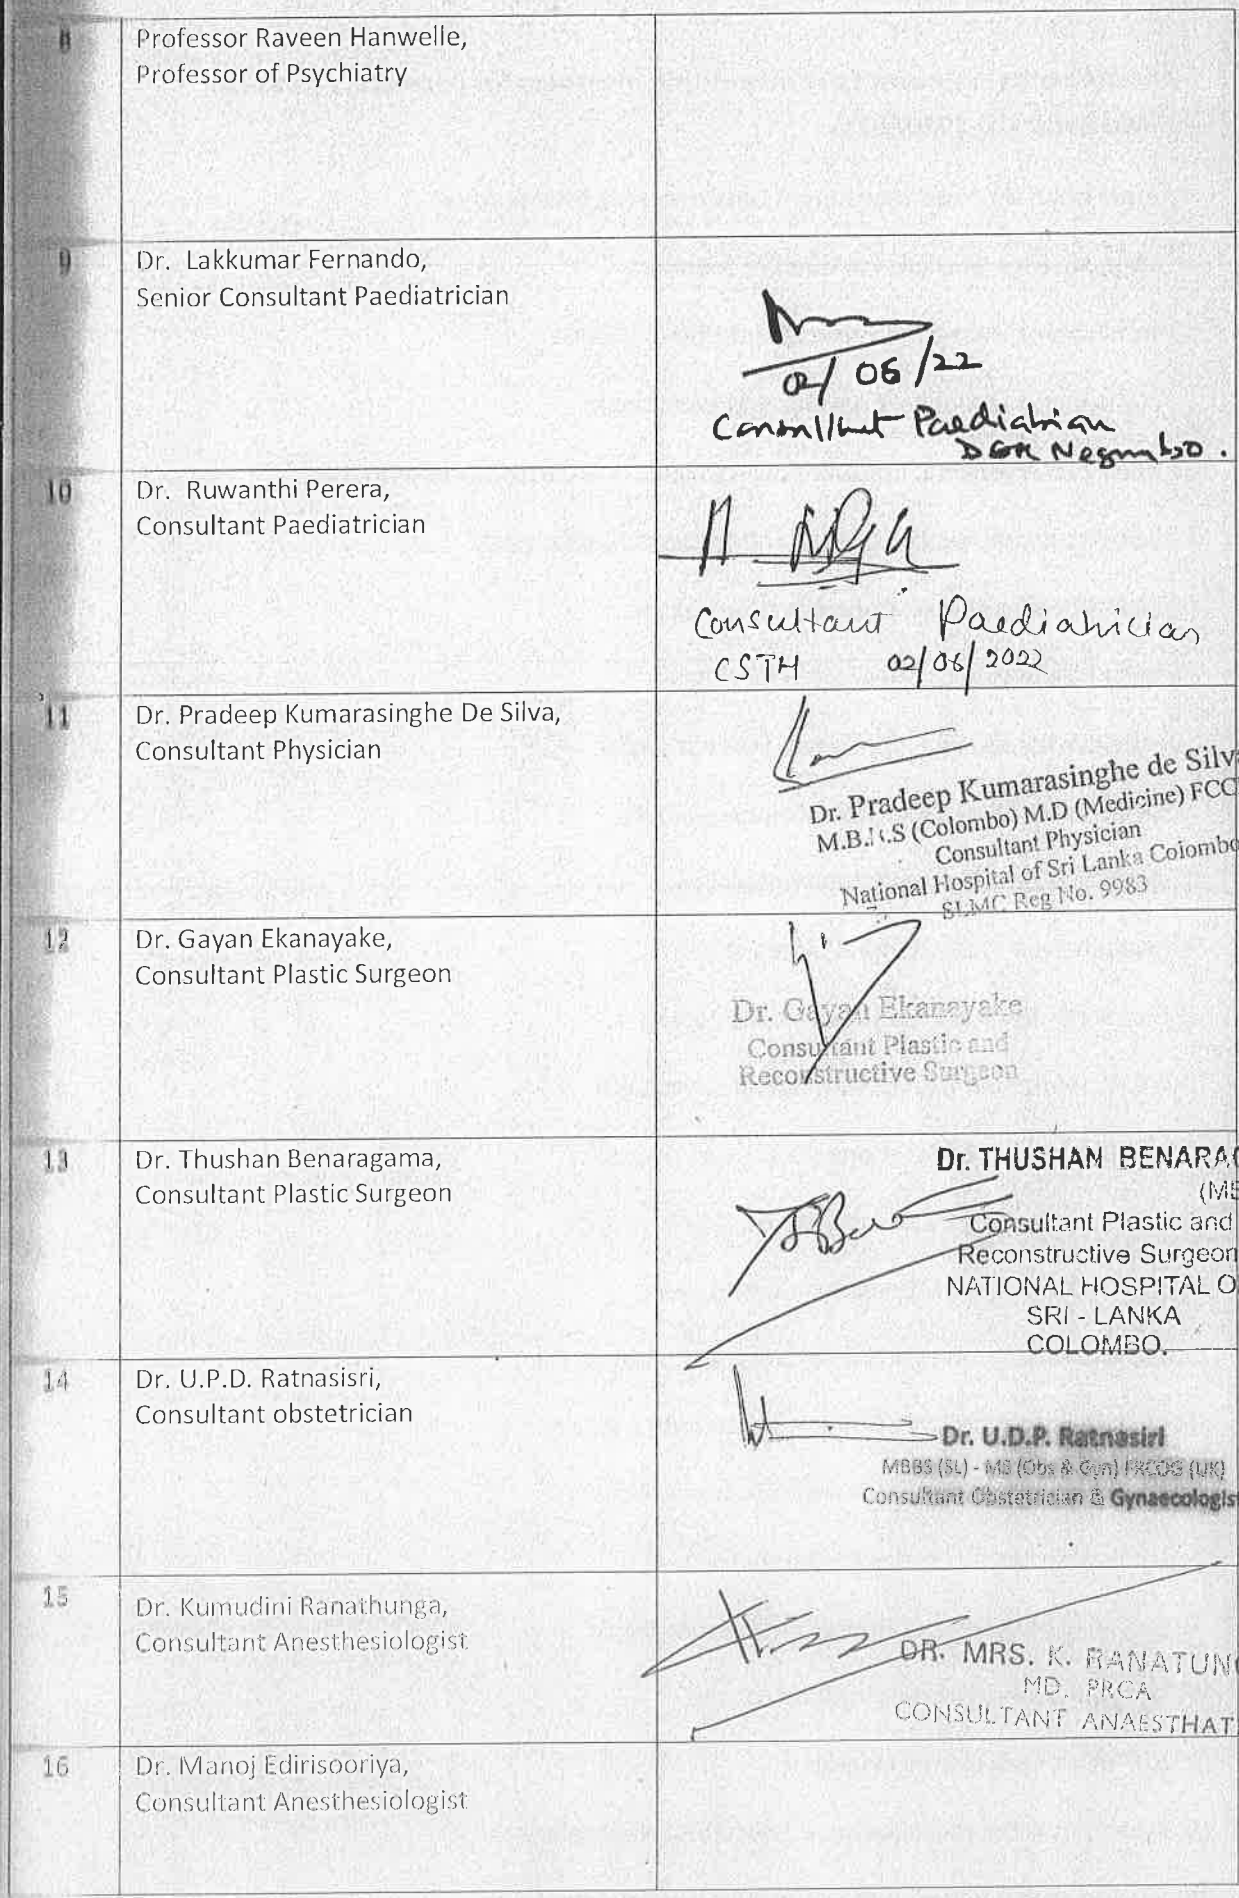 8
Professor Raveen Hanwelle,
Professor of Psychiatry
9
Dr. Lakkumar Fernando,
Senior Consultant Paediatrician
02/06/22
Consultant Paediatrician
DGH Negombo.
10
Dr. Ruwanthi Perera,
Consultant Paediatrician
Consultant Paediatrician
CSTH 02/06/2022
11
Dr. Pradeep Kumarasinghe De Silva,
Consultant Physician
Dr. Pradeep Kumarasinghe de Silv
M.B.B.S (Colombo) M.D (Medicine) FCC
Consultant Physician
National Hospital of Sri Lanka Colombo
SLMC Reg No. 9983
12
Dr. Gayan Ekanayake,
Consultant Plastic Surgeon
Dr. Gayan Ekanayake
Consultant Plastic and
Reconstructive Surgeon
13
Dr. Thushan Benaragama,
Consultant Plastic Surgeon
Dr. THUSHAN BENARAG
(MS
Consultant Plastic and
Reconstructive Surgeon
NATIONAL HOSPITAL O
SRI - LANKA
COLOMBO.
14
Dr. U.P.D. Ratnasisri,
Consultant obstetrician
Dr. U.D.P. Ratnasiri
MBBS (SL) - MS (Obs & Gyn) FRCOG (UK)
Consultant Obstetrician & Gynaecologist
15
Dr. Kumudini Ranathunga,
Consultant Anesthesiologist
DR. MRS. K. RANATUNG
MD. FRCA
CONSULTANT ANAESTHAT
16
Dr. Manoj Edirisooriya,
Consultant Anesthesiologist